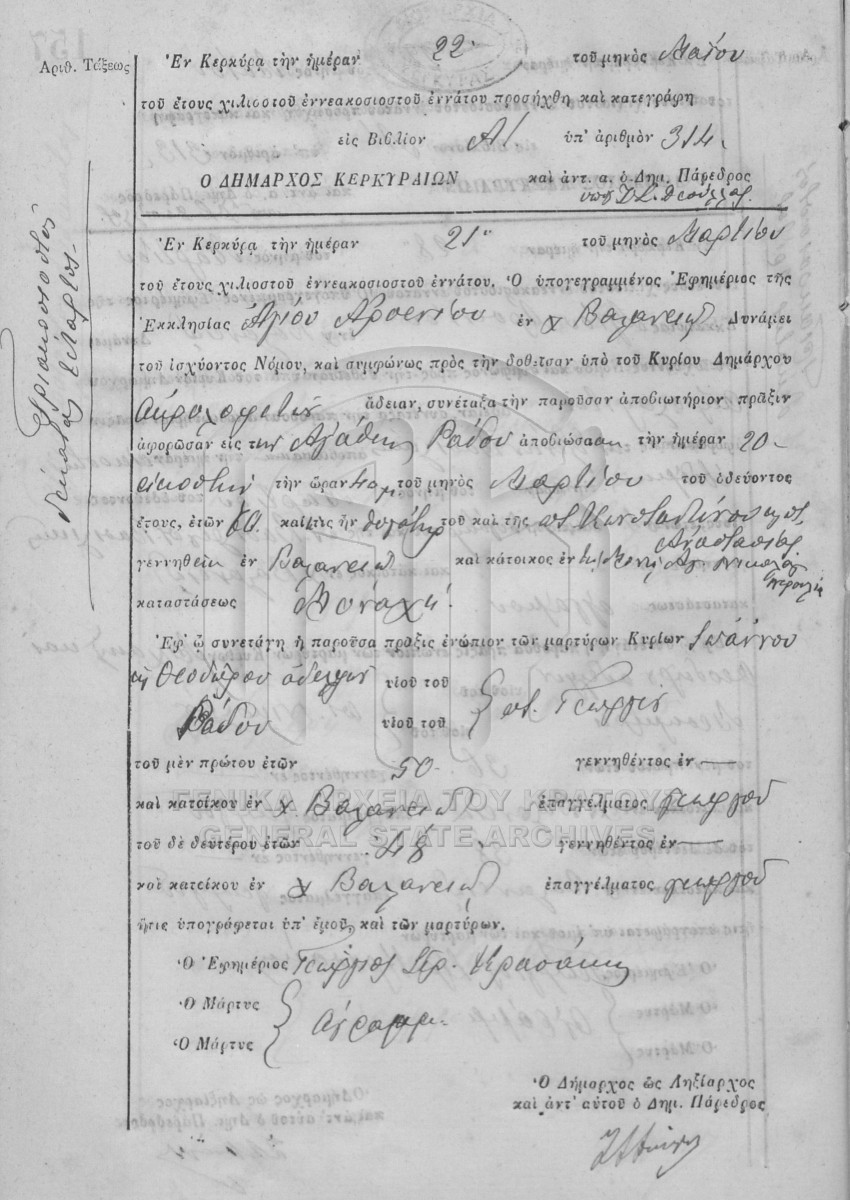 Ἀριθ. Τάξεως
Τριακοσιοστὸς
δέκατος τέταρτος.
Ἐν Κερκύρᾳ τὴν ἡμέραν 22 τοῦ μηνὸς Μαΐου
τοῦ ἔτους χιλιοστοῦ ἐννεακοσιοστοῦ ἐννάτου προσήχθη καὶ κατεγράφη
εἰς Βιβλίον Α΄. ὑπ' ἀριθμὸν 314.
Ο ΔΗΜΑΡΧΟΣ ΚΕΡΚΥΡΑΙΩΝ καὶ ἀντ. α. ὁ Δημ. Πάρεδρος
Ἐν Κερκύρᾳ τὴν ἡμέραν 21 τοῦ μηνὸς Μαρτίου
τοῦ ἔτους χιλιοστοῦ ἐννεακοσιοστοῦ ἐννάτου. Ὁ ὑπογεγραμμένος Ἐφημέριος τῆς
Ἐκκλησίας Ἁγίου Ἀρσενίου ἐν χ Βαλανειῷ Δυνάμει
τοῦ ἰσχύοντος Νόμου, καὶ συμφώνως πρὸς τὴν δοθεῖσαν ὑπὸ τοῦ Κυρίου Δημάρχου
ἄδειαν, συνέταξα τὴν παροῦσαν ἀποβιωτήριον πρᾶξιν
ἀφορῶσαν εἰς τὴν Ἀγάθην Ράδου ἀποβιώσασαν τὴν ἡμέραν 20
εἰκοστὴν τὴν ὥραν τοῦ μηνὸς Μαρτίου τοῦ ὁδεύοντος
ἔτους, ἐτῶν καὶ τῆς ἦν θυγάτηρ τοῦ καὶ τῆς ποτ. Κωνσταντίνου
Ἀναστασίας
γεννηθεῖσα ἐν Βαλανειῷ καὶ κάτοικος ἐν Μονῇ Ἁγ. Νικολάου
καταστάσεως Μοναχή.
Ἐφ' ᾧ συνετάγη ἡ παροῦσα πρᾶξις ἐνώπιον τῶν μαρτύρων Κυρίων Ἰωάννου
κ Θεοδώρου ἀδελφῶν υἱοῦ τοῦ
Ράδου υἱοῦ τοῦ } ποτ. Γεωργίου
τοῦ μὲν πρώτου ἐτῶν 50 γεννηθέντος ἐν —
καὶ κατοίκου ἐν χ Βαλανειῷ ἐπαγγέλματος γεωργοῦ
ΓΕΝΙΚΑ ΑΡΧΕΙΑ ΤΟΥ ΚΡΑΤΟΥΣ
GENERAL STATE ARCHIVES
τοῦ δὲ δευτέρου ἐτῶν 48 γεννηθέντος ἐν —
καὶ κατοίκου ἐν χ Βαλανειῷ ἐπαγγέλματος γεωργοῦ
ἥτις ὑπογράφεται ὑπ' ἐμοῦ, καὶ τῶν μαρτύρων.
Ὁ Ἐφημέριος Γεώργιος Σπ. Κρασάκης
Ὁ Μάρτυς
Ἀγράμμ.
Ὁ Μάρτυς
Ὁ Δήμαρχος ὡς Ληξίαρχος
καὶ ἀντ' αὐτοῦ ὁ Δημ. Πάρεδρος